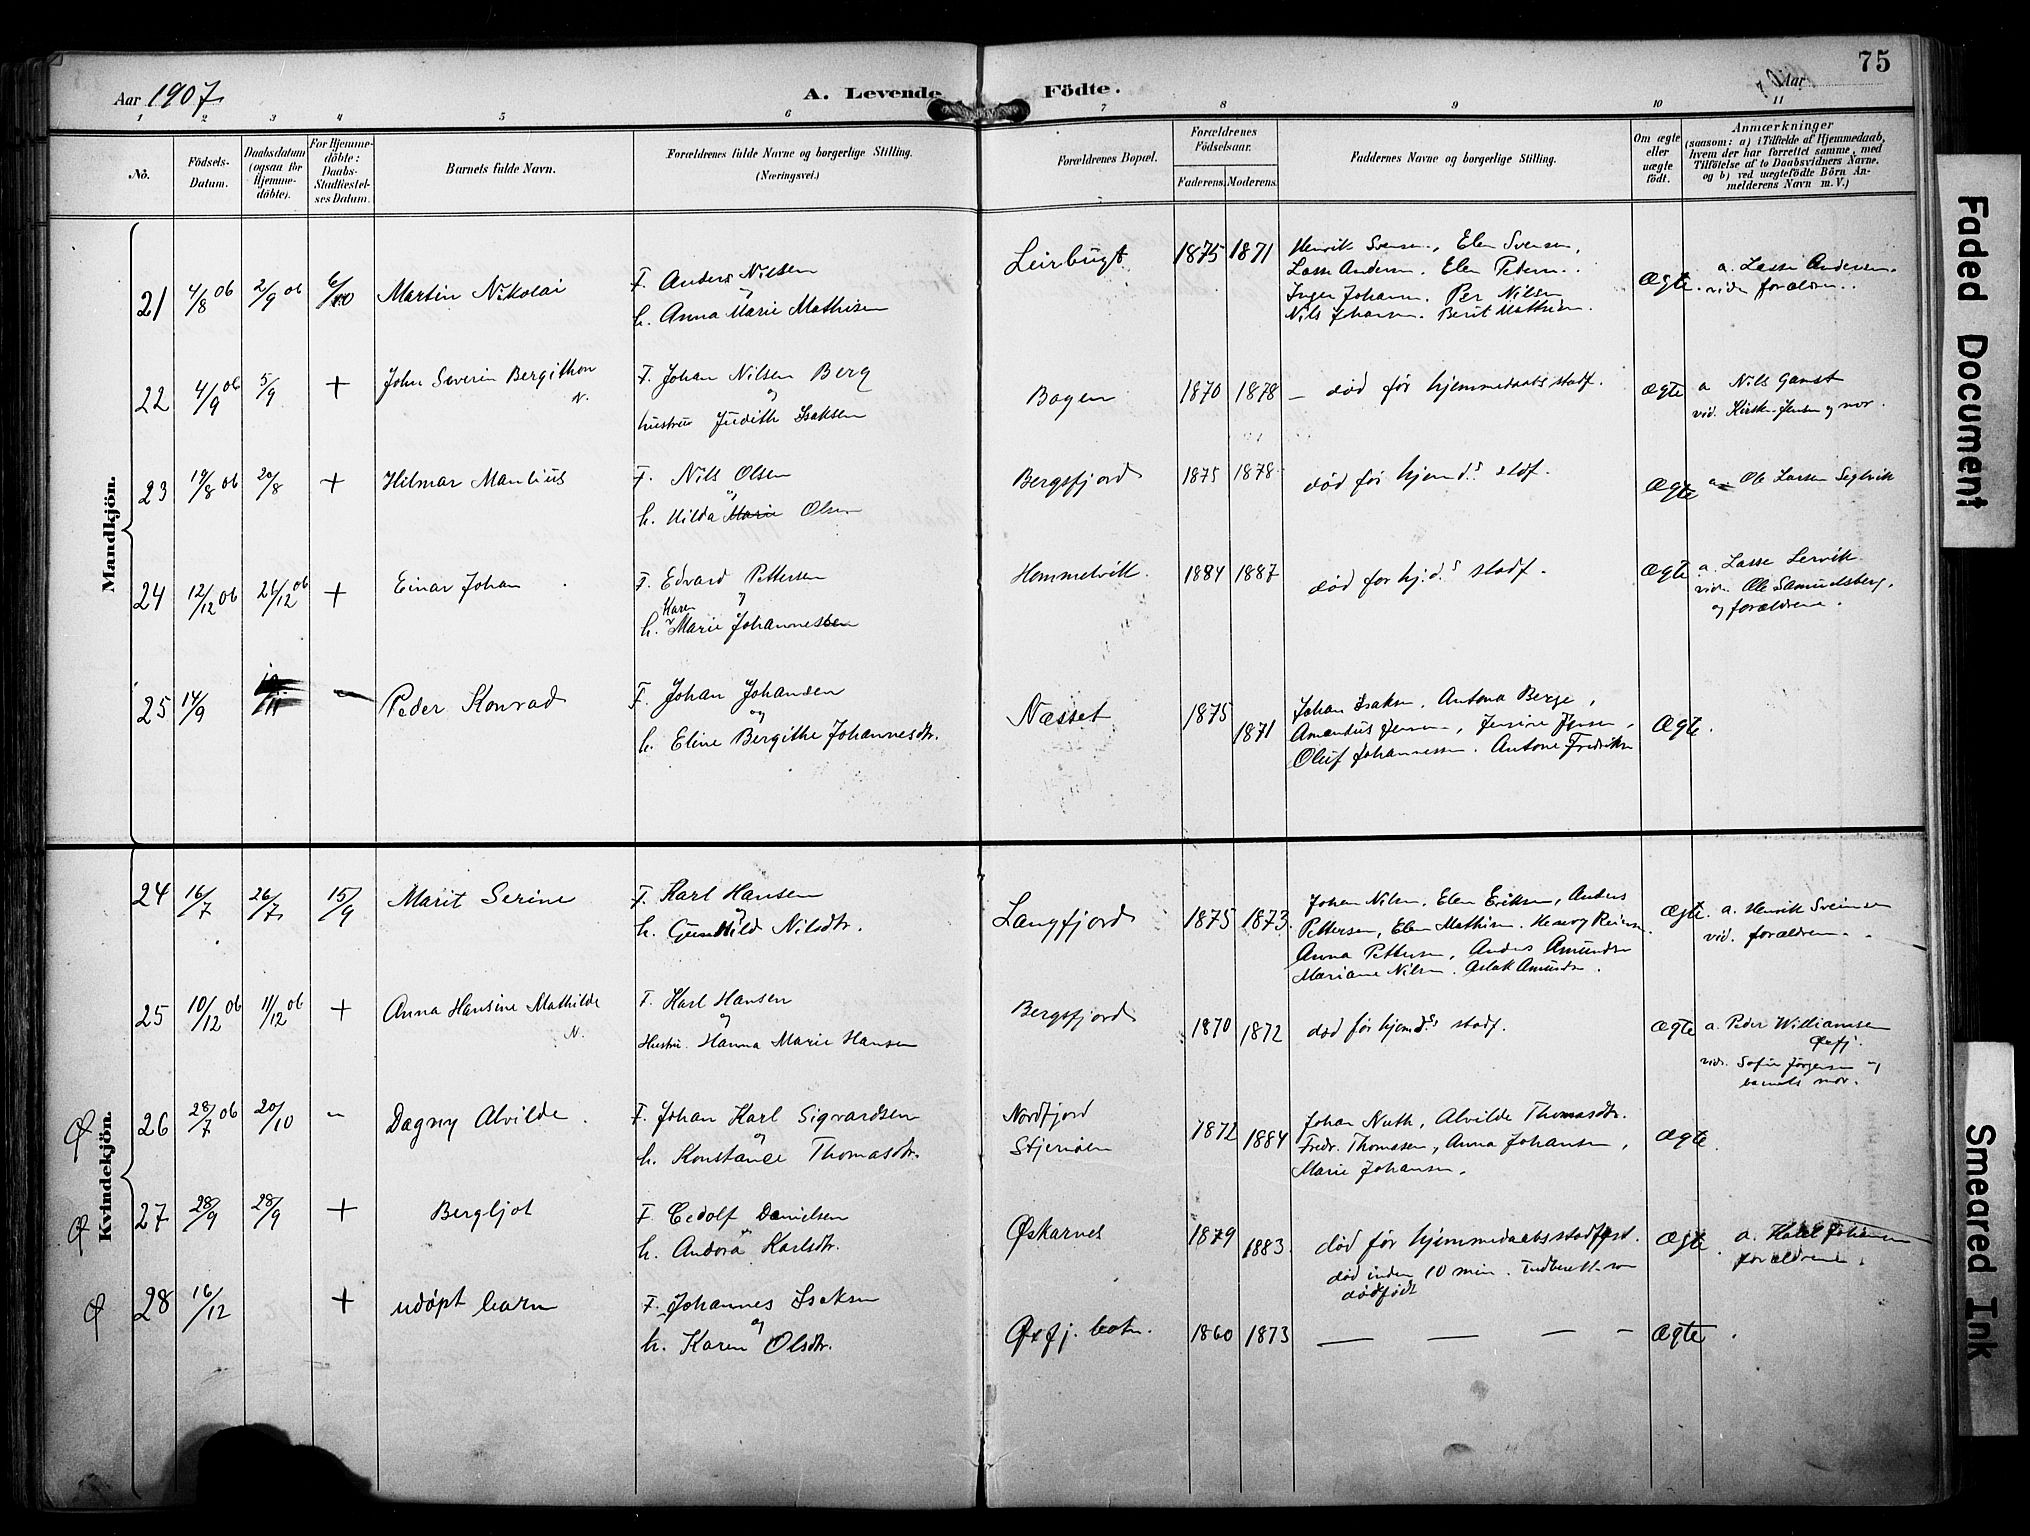 75
Aar 1907
A. Levende Födte.
Aar
1 2 3 4 5 6 7 8 9 10 11
No.
Födsels-Datum.
Daabsdatum (ogsaa for Hjemme-döbte).
For Hjemme-döbte: Daabs-Stadfæstel-ses Datum.
Barnets fulde Navn.
Forældrenes fulde Navne og borgerlige Stilling.
(Næringsvei.)
Forældrenes Bopæl.
Forældrenes Födselsaar.
Faderens. Moderens.
Faddernes Navne og borgerlige Stilling.
Om ægte eller uægte födt.
Anmærkninger
(saasom: a) i Tilfælde af Hjemmedaab,
hvem der har forrettet samme, med
Tilföielse af to Daabsvidners Navne.
og b) ved uægtefödte Börn An-
melderens Navn m. V.)
Mandkjön.
21 4/8 06 2/9 06 Martin Nikolai
F. Anders Nilsen
og
h. Anna Marie Mathisen
Leirbugt 1875 1871
Henrik Svensen, Elen Svensen,
Lasse Andersen. Elen Pedersen.
Inger Johansen. Per Nilsen
Nils Johansen. Berit Mathisen.
Ægte. a. Lasse Andersen.
vidn forældrene.
22 4/9 06 5/9 + John Severin Bergithon
N.
F. Johan Nilsen Berg
og
hustru Judith Isaksen
Bogen 1870 1878 – død før hjemmedaabs stadf.
Ægte a Nils Ganst
vid. Kirsten Jensen og mor.
23 19/8 06 20/8 + Hilmar Manlius
F. Nils Olsen
og
h. Hilda Marie Olsen
Bergsfjord 1875 1878 død før hjemds stadf.
Ægte a Ole Larsen Seglvik
24 12/12 06 21/12 06 + Einar Johan
F. Edvard Pettersen
og
Karen
h. Marie Johannessen
Hommelvik. 1884 1887 død før hj.ds stadf.
Ægte a. Lasse Lervik
vidn. Ole Samuelsberg,
og forældrene.
25 14/9 Peder Konrad
F. Johan Johansen
og
h. Eline Bergithe Johannesdtr.
Næsset 1875 1871
Johan Isaksen, Antona Berge,
Amandus Jensen, Jensine Jensen,
Oluf Johannessen. Antone Fredriksen
Ægte.
Kvindekjön.
24 16/7 26/7 15/9 Marit Serine
F. Karl Hansen
og
h. Gunhild Nilsdtr.
Langfjord 1875 1873.
Johan Nilsen, Elen Eriksen, Anders
Pettersen, Elen Mathisen.
Anna Pettersen, Anders Amundsen
Mariane Nilsen. Aslak Amundsen.
Ægte. a. Henrik Svensen
vid. forældrene.
25 10/12 06 11/12 06 + Anna Hansine Mathilde
N.
F. Karl Hansen
og
Hustru. Hanna Marie Hansen
Bergsfjord 1870 1872 død før hjemds stadf.
Ægte a. Peder Williamsen
Øxfj.
vidn. Sofie Jørgensen og
barnets mor.
Ø 26 28/7 06 20/10 – Dagny Alvilde
F. Johan Karl Sigvardsen
og
h. Konstance Thomasdtr.
Nordfjord
Stjernøen
1872 1884
Johan Nuth, Alvilde Thomasdtr.
Fredr. Thomasen, Anna Johansen,
Marie Johansen.
Ægte.
Ø 27 28/9 28/9 + Bergljot
F. Cedolf Danielsen
og
h. Andora Karlsdtr.
Øskarnes 1879 1883. død før hjemmedaabsstadfæst.
Ægte. a. Johansen
forældrene.
Ø 28 16/12 + udøpt barn
F. Johannes Isaksen
og
h. Karen Olsdtr.
Øxfj. botn. 1860 1873
død inden 10 min. Indberett. som
dødfødt
— — — –
Ægte.
Faded Document
Smeared Ink